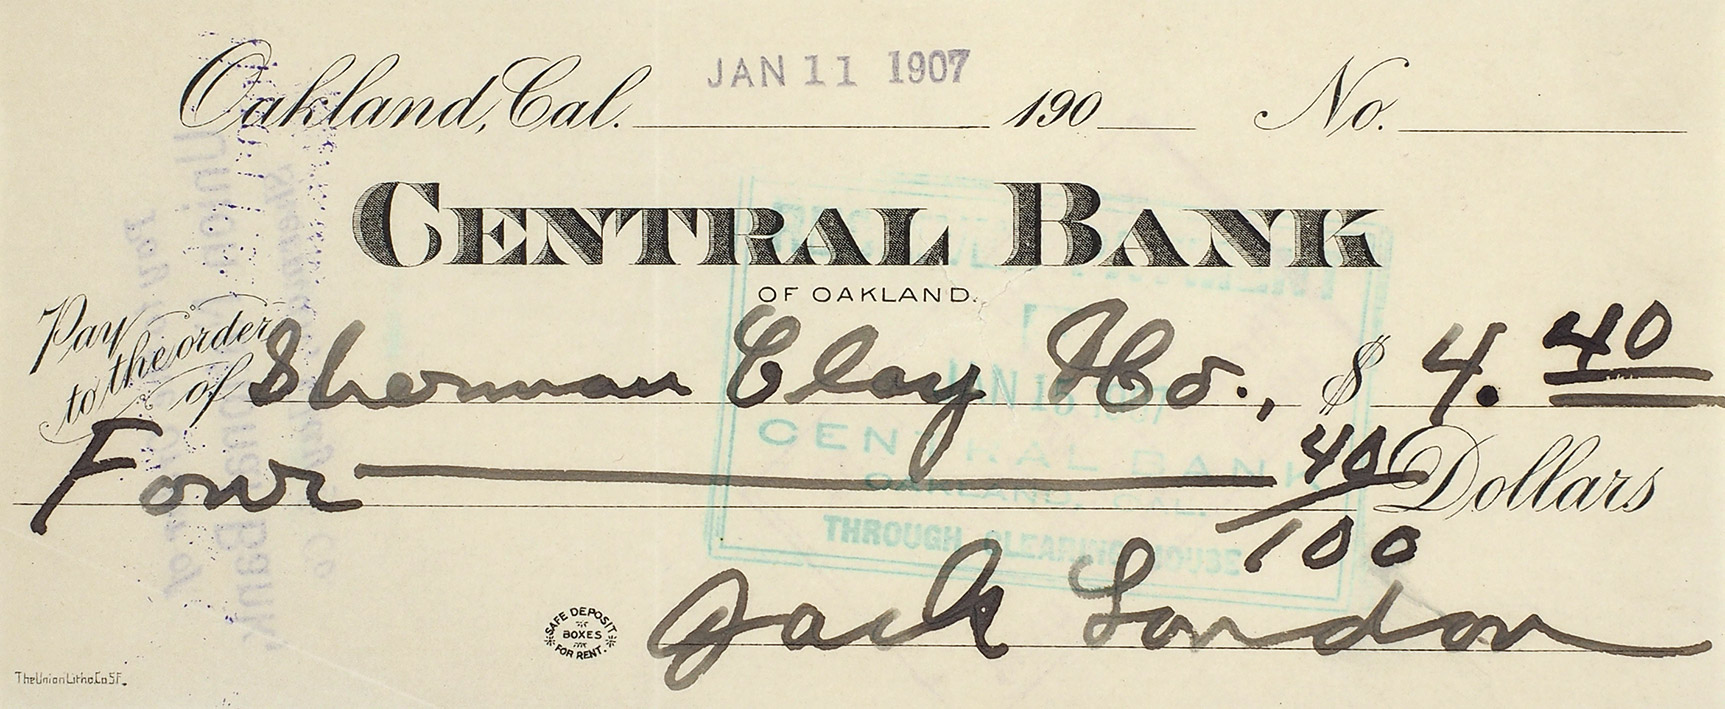 JAN 11 1907
Oakland, Cal. 190 No.
CENTRAL BANK
OF OAKLAND.
Pay to the order of Sherman Clay & Co., $ 4. 40
Four 40/100 Dollars
JAN 1907
CENTRAL BANK
OAKLAND, CAL.
THROUGH CLEARING HOUSE
Jack London
SAFE DEPOSIT
BOXES
FOR RENT.
The Union Litho. Co S.F.